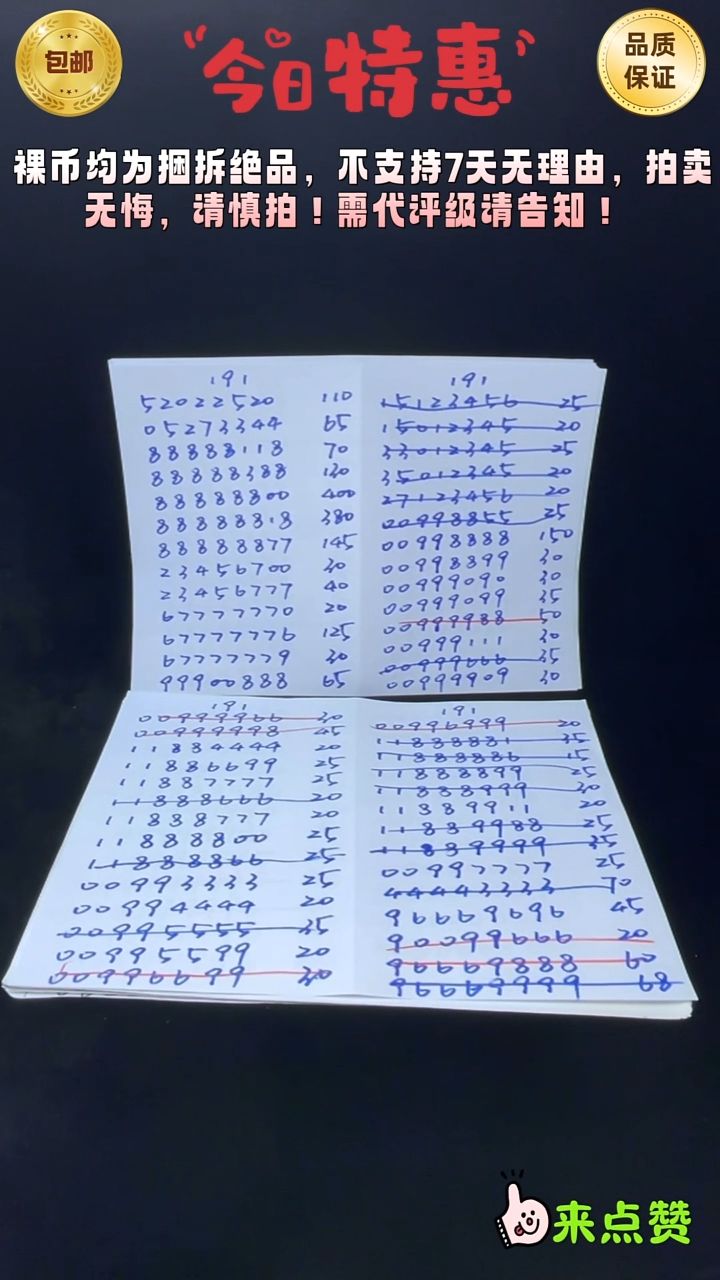 包邮
“今日特惠”
品质
保证
裸币均为捆拆绝品，不支持7天无理由，拍卖
无悔，请慎拍！需代评级请告知！
191
52022520 110
05273344 65
88888118 70
88888388 130
88888800 400
88888818 380
88888877 145
23456700 30
23456777 40
67777770 20
67777776 125
67777779 30
99900888 65
191
15123456 25
15012345 20
33012345 25
35012345 20
27123456 20
00998855 25
00998888 150
00998899 30
00999090 30
00999099 35
00999988 50
00999111 30
00999666 35
00999909 30
191
00999966 30
00999998 45
11884444 20
11886699 25
11887777 25
11888666 20
11888777 20
11888800 25
11888866 25
00993333 25
00994444 20
00995555 35
00995599 20
00996699 30
191
00996999 20
11888881 35
11888886 15
11888899 25
11888999 30
11889911 20
11889988 25
11889999 35
00997777 25
44443333 70
96669696 45
90099666 20
96669888 60
96669999 68
来点赞